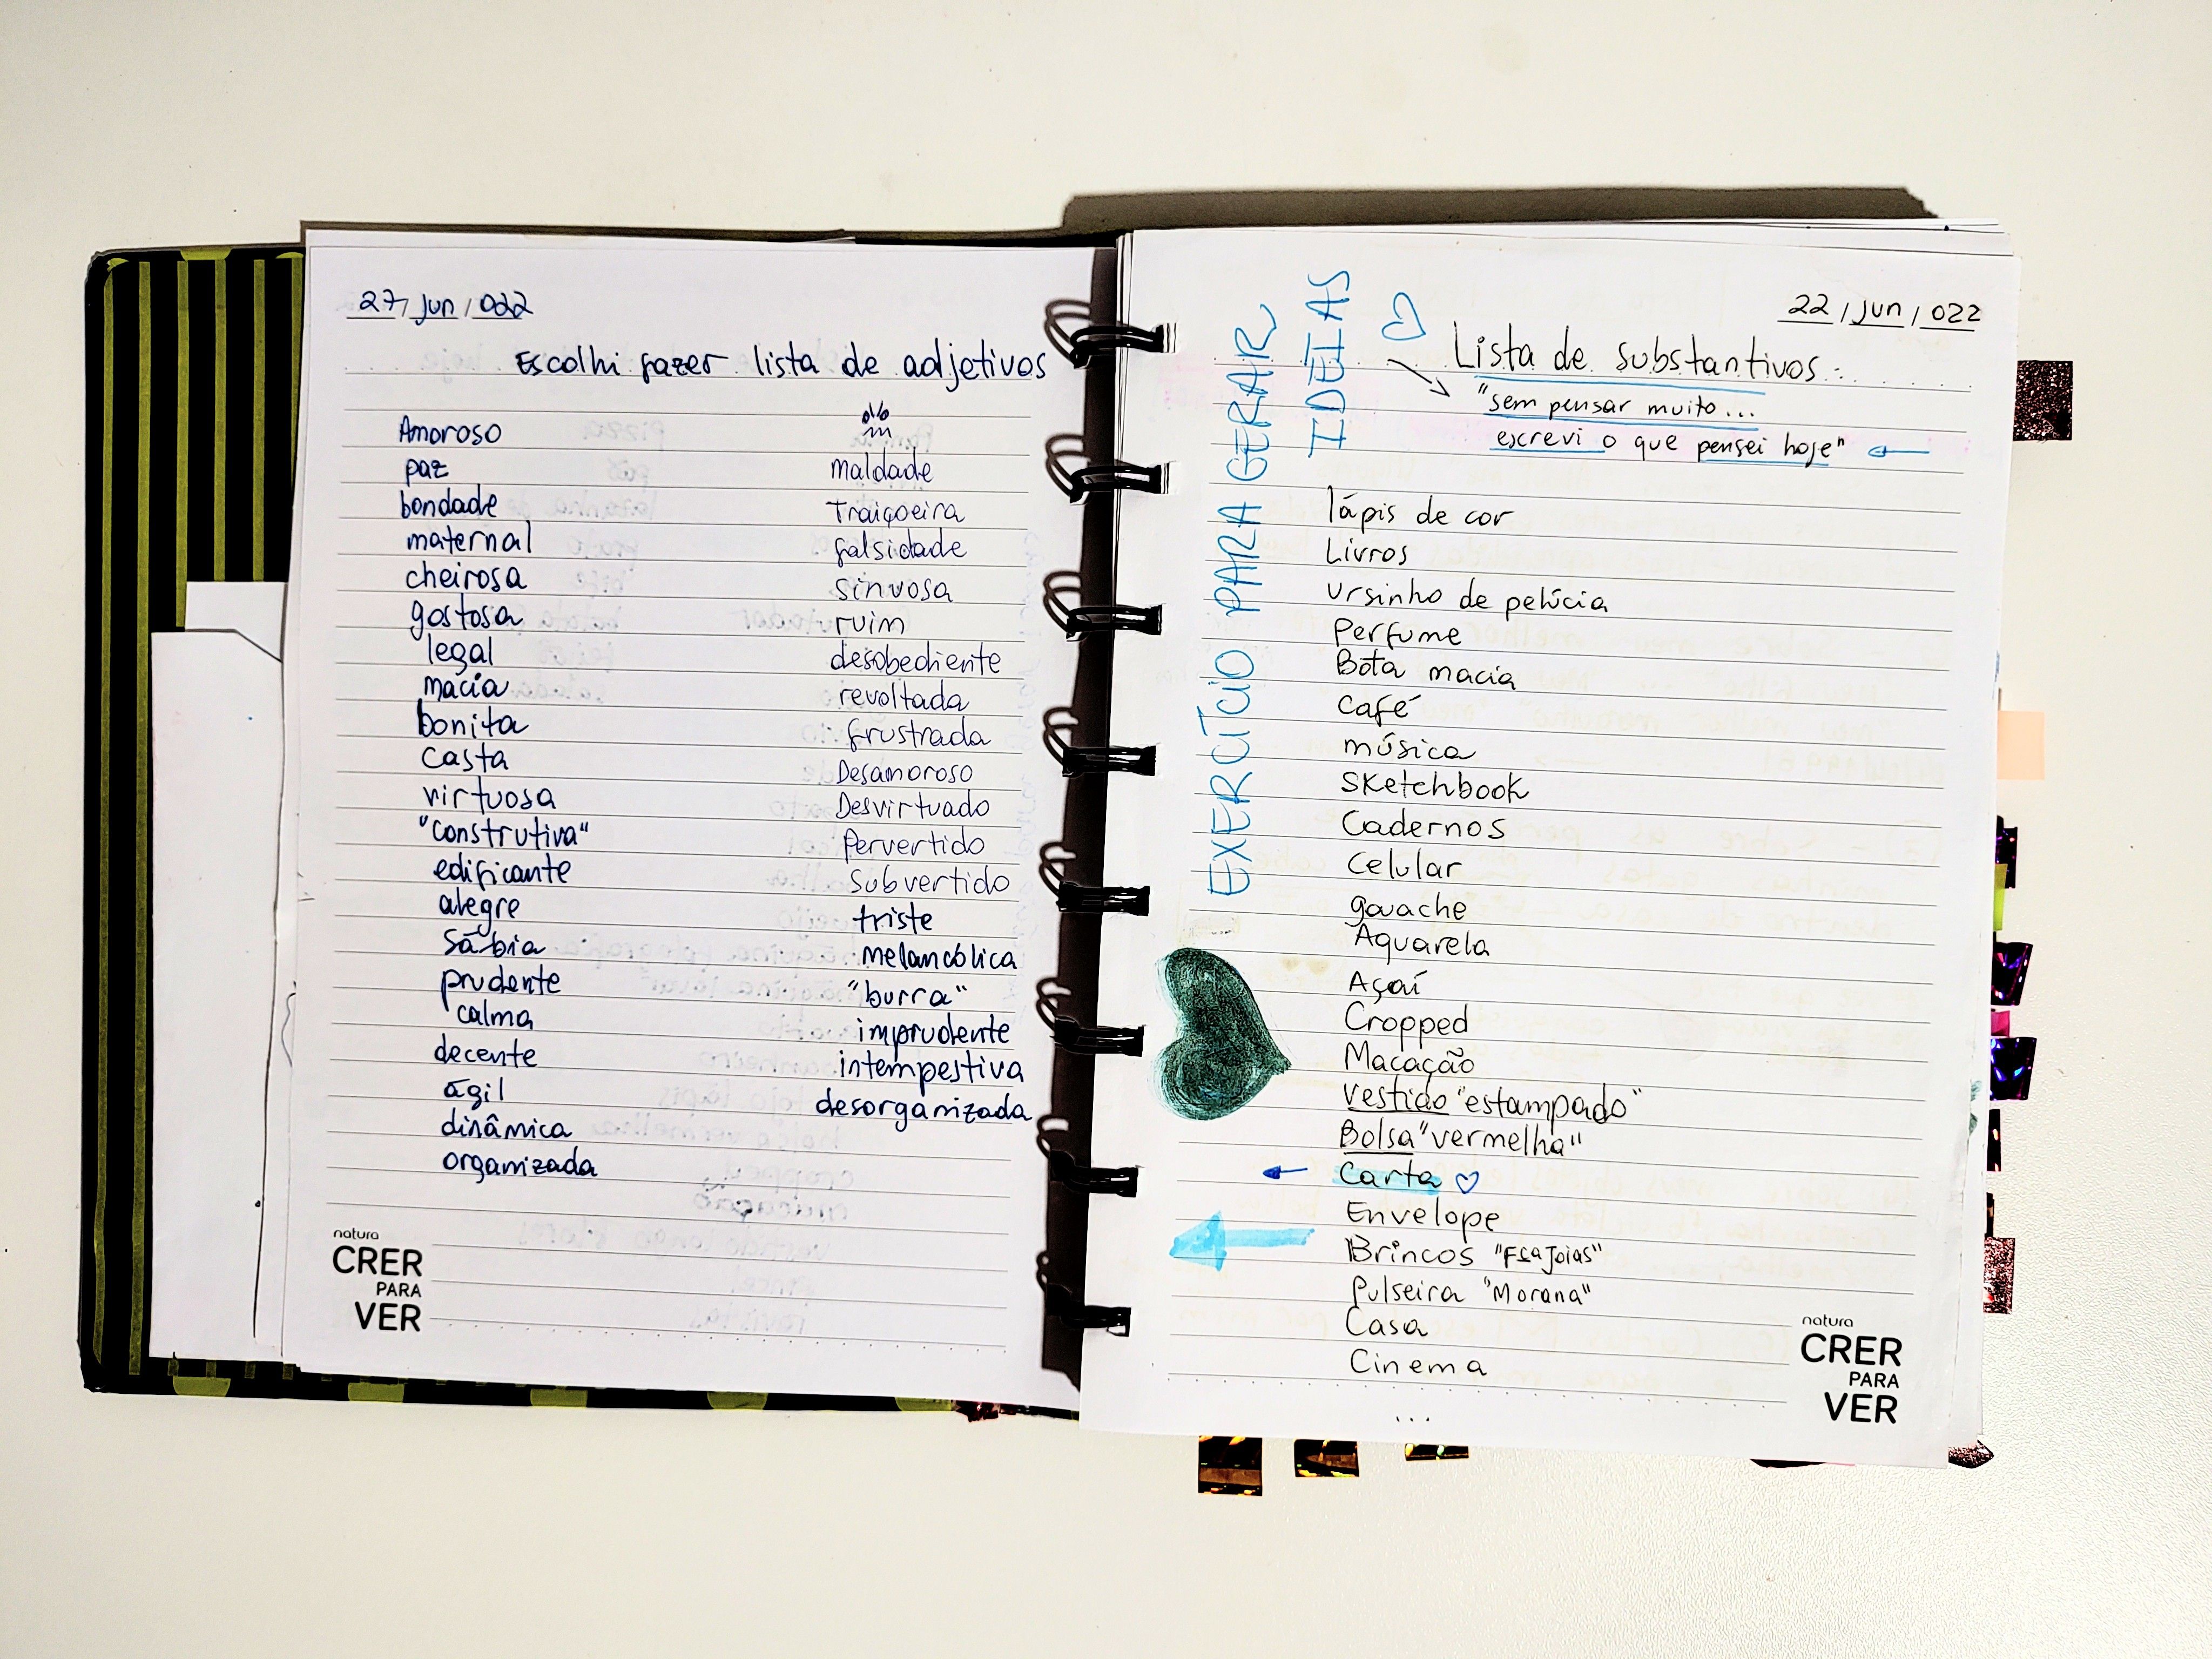 27/Jun/022
Escolhi fazer lista de adjetivos
Amoroso
paz
bondade
maternal
cheirosa
gostosa
legal
macia
bonita
casta
virtuosa
"construtiva"
edificante
alegre
Sábia
prudente
calma
decente
ágil
dinâmica
organizada
maldade
Traiçoeira
falsidade
sinuosa
ruim
desobediente
revoltada
frustrada
Desamoroso
Desvirtuado
Pervertido
Subvertido
triste
melancólica
"burra"
imprudente
intempestiva
desorganizada
natura
CRER
PARA
VER
22/Jun/022
EXERCÍCIO PARA GERAR
IDÉIAS
Lista de substantivos:
"sem pensar muito...
escrevi o que pensei hoje"
lápis de cor
Livros
ursinho de pelúcia
Perfume
Bota macia
café
música
Sketchbook
Cadernos
Celular
gouache
Aquarela
Açaí
Cropped
Macação
Vestido "estampado"
Bolsa "vermelha"
Carta
Envelope
Brincos Joias"
Pulseira "Morana"
Casa
Cinema
...
natura
CRER
PARA
VER